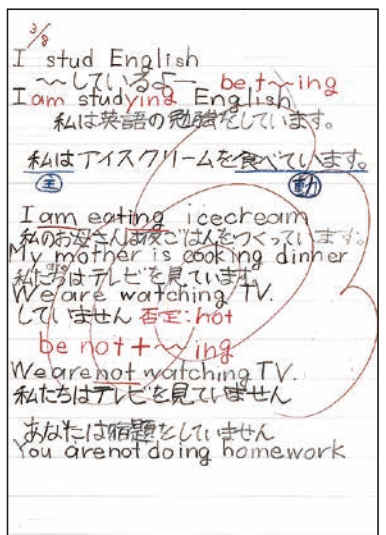 3/8
I stud English
～～しているよー be t～～ing
I am studying English
私は英語の勉強をしています。
私はアイスクリームを食べています。
主 動
I am eating icecream
私のお母さんは夜ごはんをつくっています。
My mother is cooking dinner
私たちはテレビを見ています。
We are watching TV.
していません 否定:not
be not+～～ing
We are not watching TV.
私たちはテレビを見ていません
あなたは宿題をしていません
You are not doing homework